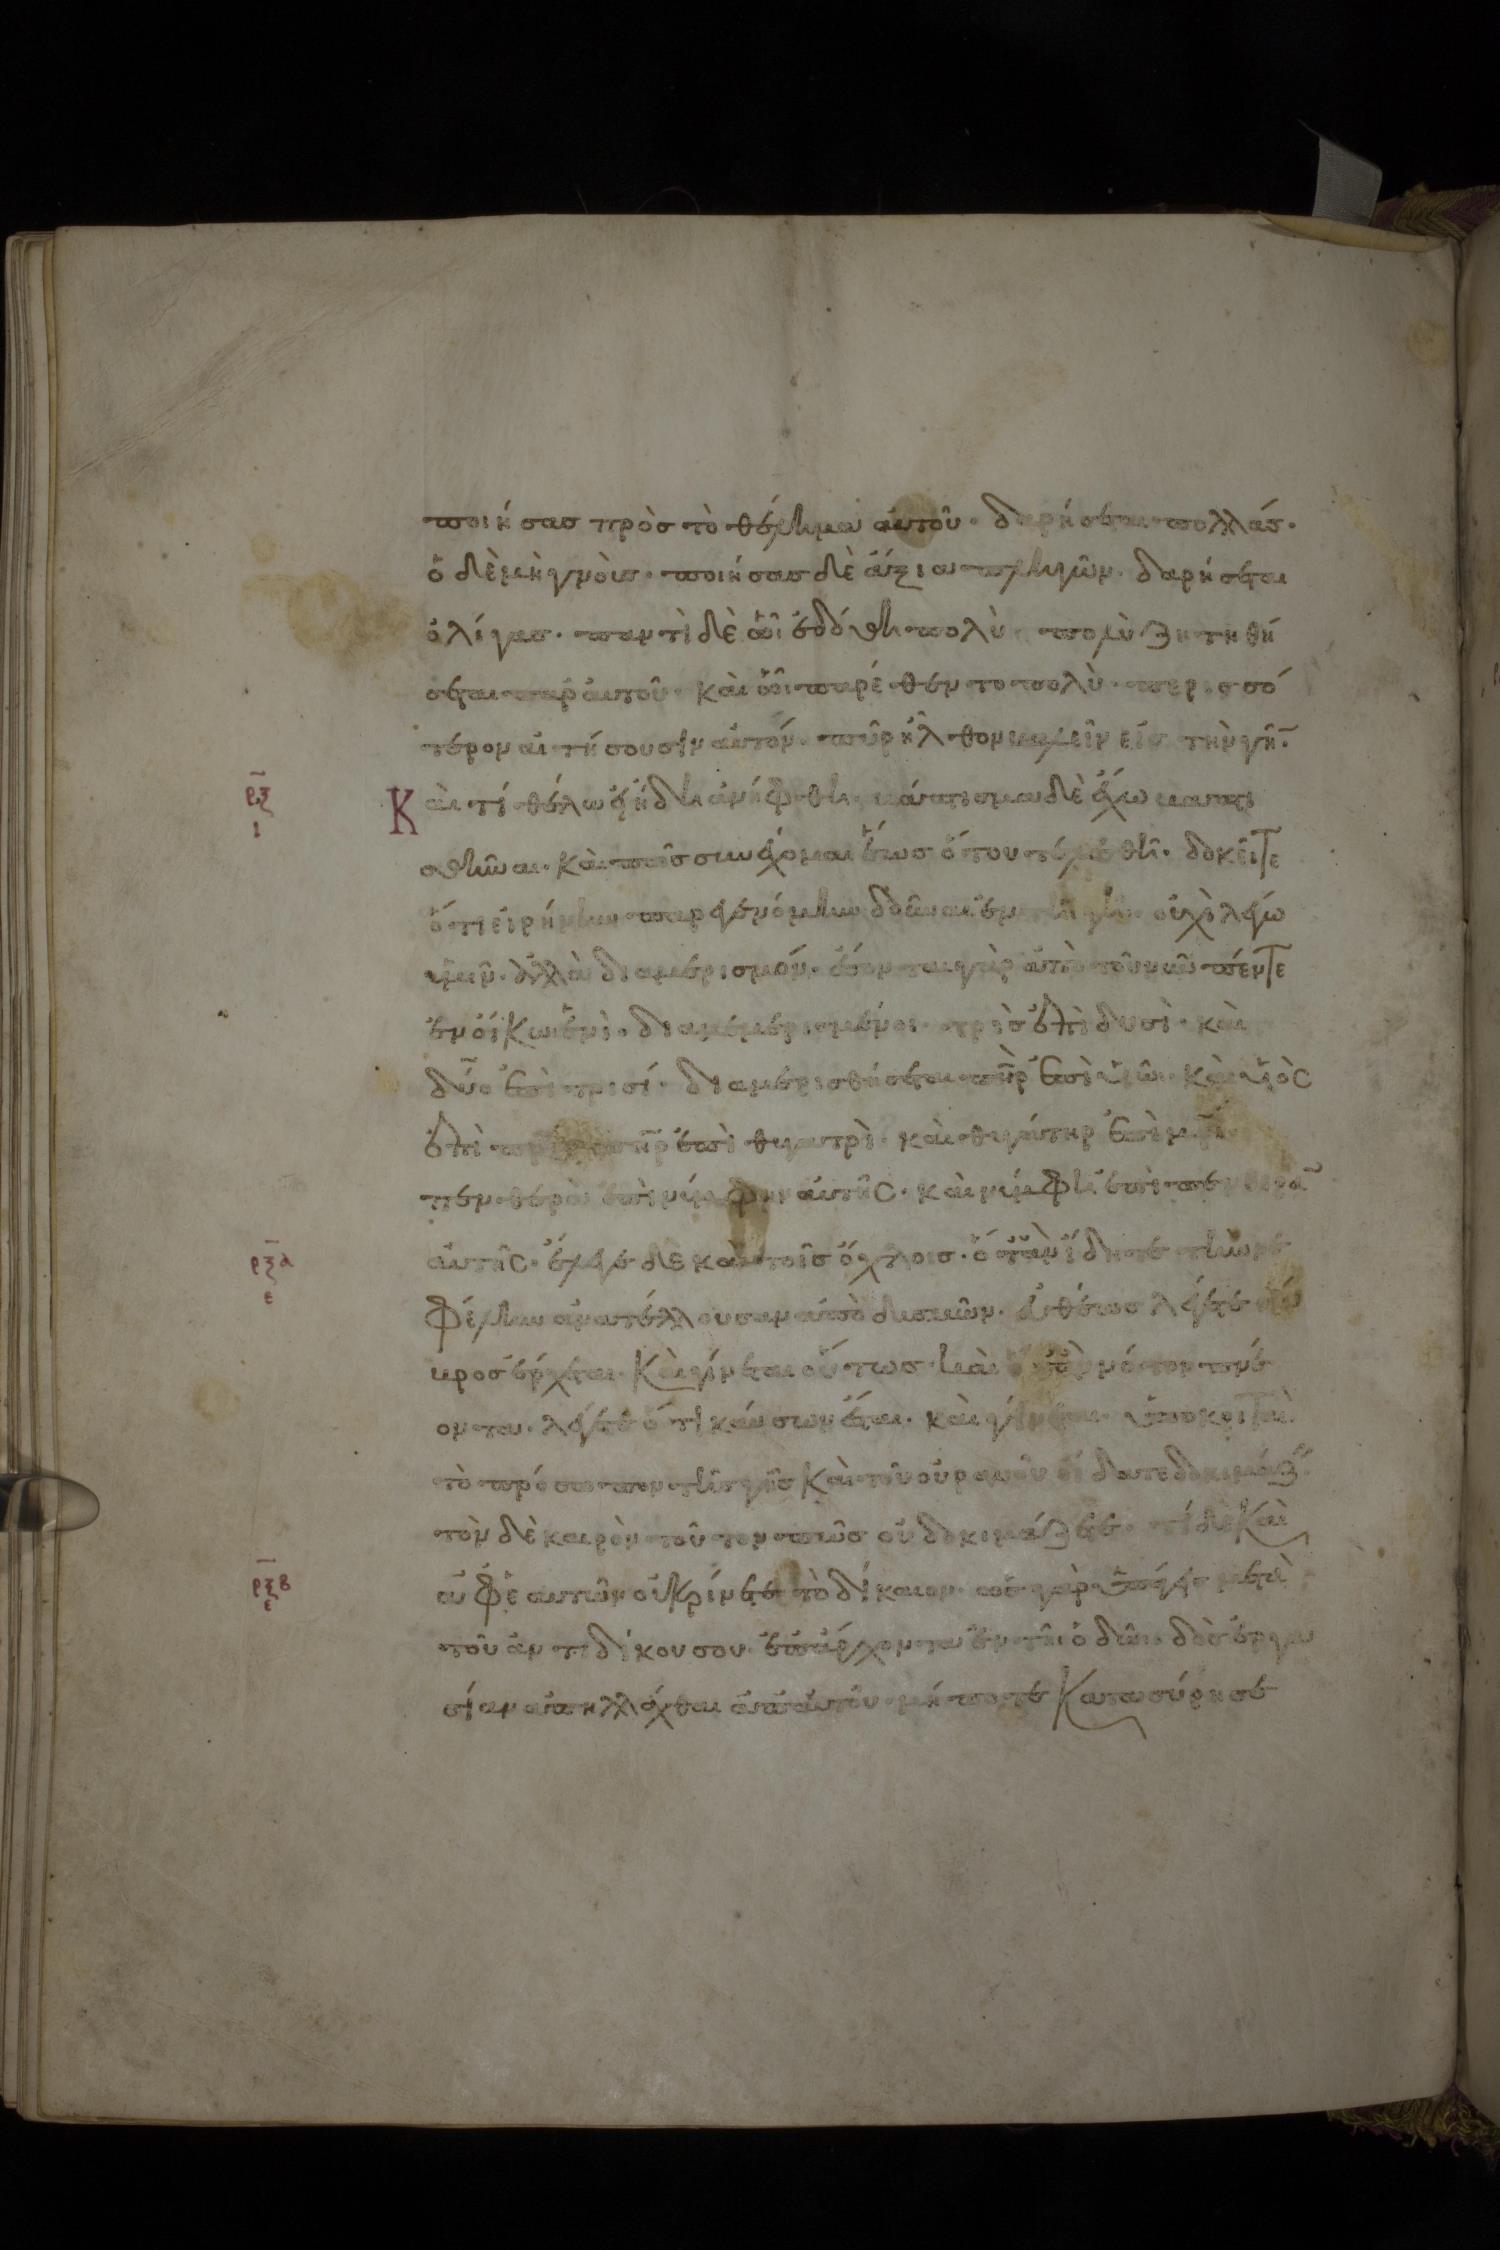 ποιήσας πρὸς τὸ θέλημα αὐτοῦ· δαρήσεται πολλάς·
ὁ δὲ μὴ γνοὺς· ποιήσας δὲ ἄξια πληγῶν· δαρήσεται
ὀλίγας· παντὶ δὲ ὧι ἐδόθη πολὺ πολὺ ζητηθή
σεται παρ αὐτοῦ· καὶ ὧι παρέθεντο πολὺ· περισσό
τερον αἰτήσουσιν αὐτόν· πῦρ ἦλθον βαλεῖν εἰς τὴν γῆ̅·
ρξ ι
Καὶ τί θέλω εἰ ἤδη ἀνήφθη· βάπτισμα δὲ ἔχω βαπτι
σθῆναι· καὶ πῶς συνέχομαι ἕως ὅτου τελεσθῆ· δοκεῖτε
ὅτι εἰρήνην παρεγενόμην δοῦναι ἐν τῆ γῆ· οὐχὶ λέγω
ὑμῖν· ἀλλὰ διαμερισμόν· ἔσονται γὰρ ἀπὸ τοῦ νῦν πέντε
ἐν οἴκωι ἑνὶ· διαμεμερισμένοι· τρεῖς ἐπὶ δυσὶ· καὶ
δύο ἐπὶ τρισί· διαμερισθήσεται π̅η̅ρ ἐπὶ υἱῶι· καὶ υἱὸς
ἐπὶ π̅ρ̅ι̅ μ̅η̅ρ ἐπὶ θυγατρὶ· καὶ θυγάτηρ ἐπὶ μ̅ρ̅ι̅·
πενθερὰ ἐπὶ νύμφην αὐτῆς· καὶ νύμφη ἐπὶ πενθερὰ̅
αὐτῆς· ἔλεγε δὲ καὶ τοῖς ὄχλοις· ὅταν ἴδητε τὴν νε
ρξα ε
φέλην ἀνατέλλουσαν ἀπὸ δυσμῶν· εὐθέως λέγετε ὄμ
βρος ἔρχεται· Καὶ γίνεται οὕτως· καὶ ὅταν νότον πνέ
οντα· λέγετε ὅτι καύσων ἔσται· καὶ γίνεται· ὑποκριταὶ
τὸ πρόσωπον τῆς γῆς Καὶ τοῦ οὐρανοῦ οἴδατε δοκιμάζ̅·
τὸν δὲ καιρὸν τοῦτον πῶς οὐ δοκιμάζετε· τί δὲ Καὶ
ρξβ ε
ἀφ ἑαυτῶν οὐ Κρίνετε τὸ δίκαιον· ὡς γὰρ ὑπάγεις μετὰ
τοῦ ἀντιδίκου σου ἐπ ἄρχοντα ἐν τῆι ὁδῶι· δὸς ἐργα
σίαν ἀπηλλάχθαι ἀπ αὐτοῦ· μή ποτε Κατασύρη σε